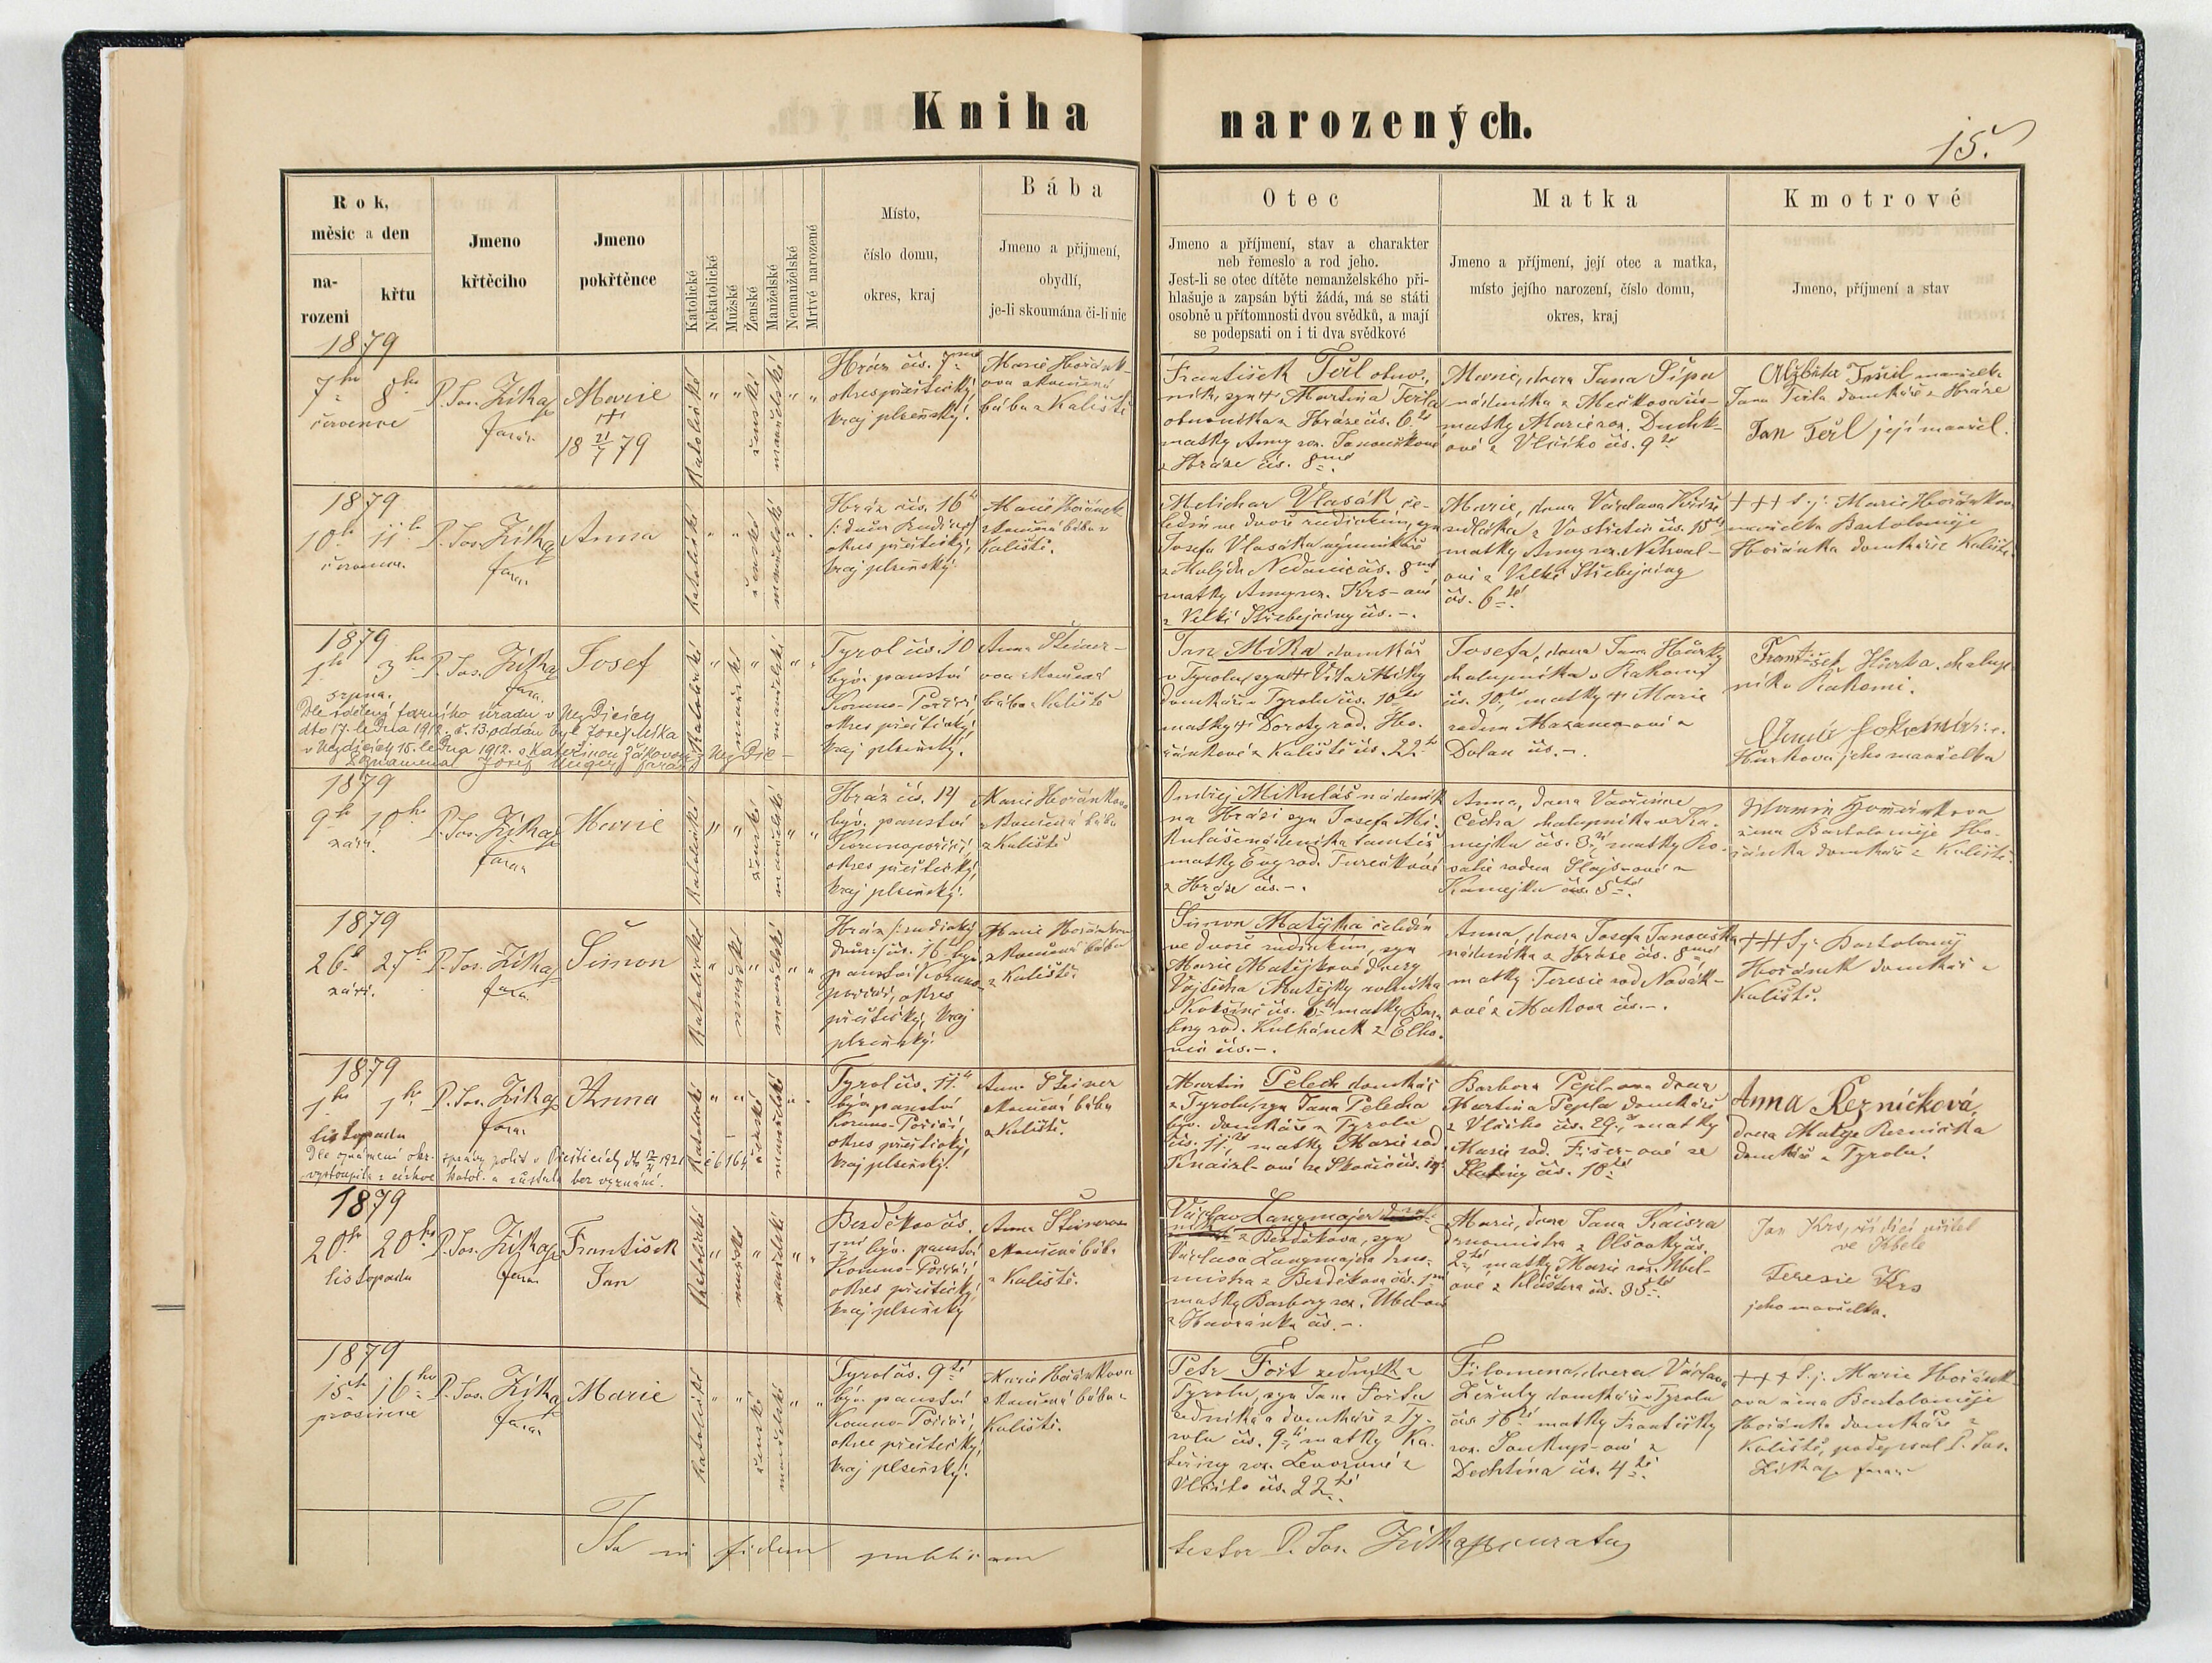 Kniha narozených.
15.
Rok,
měsíc a den
na-
rozeni
křtu
Jmeno
křtěciho
Jmeno
pokřtěnce
Katolické
Nekatolické
Mužské
Ženské
Manželské
Nemanželské
Mrtvé narozené
Místo,
číslo domu,
okres, kraj
Bába
Jmeno a přijmení,
obydlí,
je-li skoumána či-li nic
Otec
Jmeno a příjmení, stav a charakter
neb řemeslo a rod jeho.
Jest-li se otec dítěte nemanželského při-
hlašuje a zapsán býti žádá, má se státi
osobně u přítomnosti dvou svědků, a mají
se podepsati on i ti dva svědkové
Matka
Jmeno a příjmení, její otec a matka,
místo jejího narození, číslo domu,
okres, kraj
Kmotrové
Jmeno, příjmení a stav
1879
7ho 8ho
července
P. Jos. Zítka
farář
Marie
+
18 21/7 79
Katolické
ženské
manželské
Hráz čís. 7mé
okres přeštický,
kraj plzeňský.
bába z Kaliště
František Teřl obuv-
ník, syn + Martina Teřla
obuvníka z Hráze čís. 6té
matky Anny roz. Janouškové
z Hráze čís. 8mé
Marie, dcera Jana Šípa
nádeníka z Mečkova čís. -
matky Marie roz. Duchk-
ové z Vlčího čís. 9té
Alžběta manželka
Jana Teřla domkáře z Hráze
Jan Teřl její manžel.
1879
10ho 11ho
července.
P. Jos. Zítka
farář
Anna
Katolické
ženské
manželské
Hráz čís. 16té
okres přeštický,
kraj plzeňský
Marie Hořánk
zkoušená bába z
Kaliště.
Melichar Vlasák če-
ledín ve dvoře rudickém, syn
Josefa Vlasáka
z Malých Nedanic čís. 8mé
matky Anny roz. Krs-ové
z Velké Střebejčiny čís. -.
Marie, dcera Václava Kříže
sedláka z Vostřetic čís. 15té
matky Anny roz.
ové z Velké Střebejčiny
čís. 6té
+++ s.j. Marie Hořánkova
manželka Bartoloměje
Hořánka domkáře z Kaliště.
1879
1ho 3ho
srpna.
P. Jos. Zítka
farář
Josef
Katolické
mužské
manželské
Tyrol čís. 10
býv. panství
Koruno-Poříčí
okres přeštický,
kraj plzeňský.
Anna Šteiner-
ova zkoušená
bába z Kaliště
Jan Míka domkář
v Tyrolu, syn + Víta Míky
domkáře z Tyrolu čís. 10té
matky + Doroty rod. Ho-
řánkové z Kaliště čís. 22té
Josefa, dcera Jana Hůrky
chalupníka z Kakova
čís. 10té, matky + Marie
rodem
Dolan čís. -.
František Hůrka, chalup-
ník v Kakovi.
Hůrkova jeho manželka
Dle sdělení farního úřadu v Nezdicích
dto 17. ledna 1912. č. 13. oddán byl Josef Míka
v Nezdicích 15. ledna 1912. s Kateřinou Žákovou z Nezdic -
Poznamenal Josef farář
1879
9ho 10ho
září.
P. Jos. Zítka
farář
Marie
Katolické
ženské
manželské
Hráz čís. 14
býv. panství
Korunopoříčí,
okres přeštický,
kraj plzeňský.
Marie Hořánkova
zkoušená bába
z Kaliště
Ondřej Mikuláš nádeník
na Hrázi syn Josefa Mi-
kuláše nádeníka tamtéž
matky Evy rod. Turečkové
z Hráze čís. -.
Anna, dcera Vavřince
Čecha chalupníka v Ka-
mejku čís. 3tí, matky Ro-
salie rodem
Kamejku čís. 5té.
Marie Hořánkova
žena Bartoloměje Ho-
řánka domkáře z Kaliště.
1879
26ho 27ho
září.
P. Jos. Zítka
farář
Šimon
Katolické
mužské
manželské
Hráz /: rudický
dvůr:/ čís. 16 býv.
panství Koruno-
poříčí, okres
přeštický, kraj
plzeňský.
Marie Hořánkova
zkoušená bába
z Kaliště.
Šimon Matějka čeledín
ve dvoře rudickém, syn
Marie Matějkové dcery
Vojtěcha Matějky rolníka
z Kokšína čís. 6té matky Bar-
bory rod. Kulhánek z Elho-
vic čís. -.
Anna, dcera Josefa Janouška
nádeníka z Hráze čís. 8mé
matky Teresie rod Novák-
ové z Makova čís. -.
+++ s.j. Bartoloměj
Hořánek domkář z
Kaliště.
1879
1ho 1ho
listopadu
P. Jos. Zítka
farář
Anna
Katolické
ženské
manželské
Tyrol čís. 11té
býv. panství
Koruno-Poříčí,
okres přeštický,
kraj plzeňský.
Anna Šteiner
zkoušená bába
z Kaliště.
Martin Pelech domkář
z Tyrolu, syn Jana Pelecha
býv. domkáře z Tyrolu
čís. 11té, matky Marie rod
Knaizl-ové ze Skočic čís. 19.
Barbora Pepl-ova dcera
Martina Pepla domkáře
z Vlčího čís. 29té, matky
Marie rod. Fišer-ové ze
čís. 18té
Anna Rezničková,
dcera Matěje Rezníčka
domkáře z Tyrolu.
Dle oznámení okr. správy polit. v Přešticích dto 1921 č 6164
vystoupila z církve katol. a zůstala bez vyznání.
1879
20ho 20ho
listopadu
P. Jos. Zítka
farář
František
Jan
Katolické
mužské
manželské
Bezděkov čís.
1ní býv. panství
Koruno-Poříčí
okres přeštický,
kraj plzeňský
Anna Šteinerova
zkoušená bába
z Kaliště.
Václav Langmajer
z Bezděkova, syn
Václava Langmajera drno-
mistra z Bezděkova čís. 1ní
matky Barbory roz. Ubl-ové
z Havránka čís. -.
Marie, dcera Jana Kaisra
drnomistra z Olšovky čís.
2té, matky Marie roz. Ubl-
ové z Kláštera čís. 35té
Jan Krs, řídící učitel
ve Kbele
Teresie Krs
jeho manželka.
1879
15ho 16ho
prosince
P. Jos. Zítka
farář
Marie
Katolické
ženské
manželské
Tyrol čís. 9té
býv. panství
Koruno-Poříčí,
okres přeštický,
kraj plzeňský.
Marie Hořánkova
zkoušená bába z
Kaliště.
Petr Fořt zedník z
Tyrolu, syn Jana Fořta
zedníka a domkáře z Ty-
rolu čís. 9té, matky Ka-
teřiny roz. Levorové z
Vlčího čís. 22té
Filomena, dcera Václava
Žežuly domkáře z Tyrolu
čís. 16té matky Františky
roz. Soukup-ové z
Dechtína čís. 4té.
+++ s.j. Marie Hořánk-
ova žena Bartoloměje
Hořánka domkáře z
Kaliště, podepsal P. Jos.
Zítka farář
Ita in fidem publicam
testor P. Jos. Zítka curatus